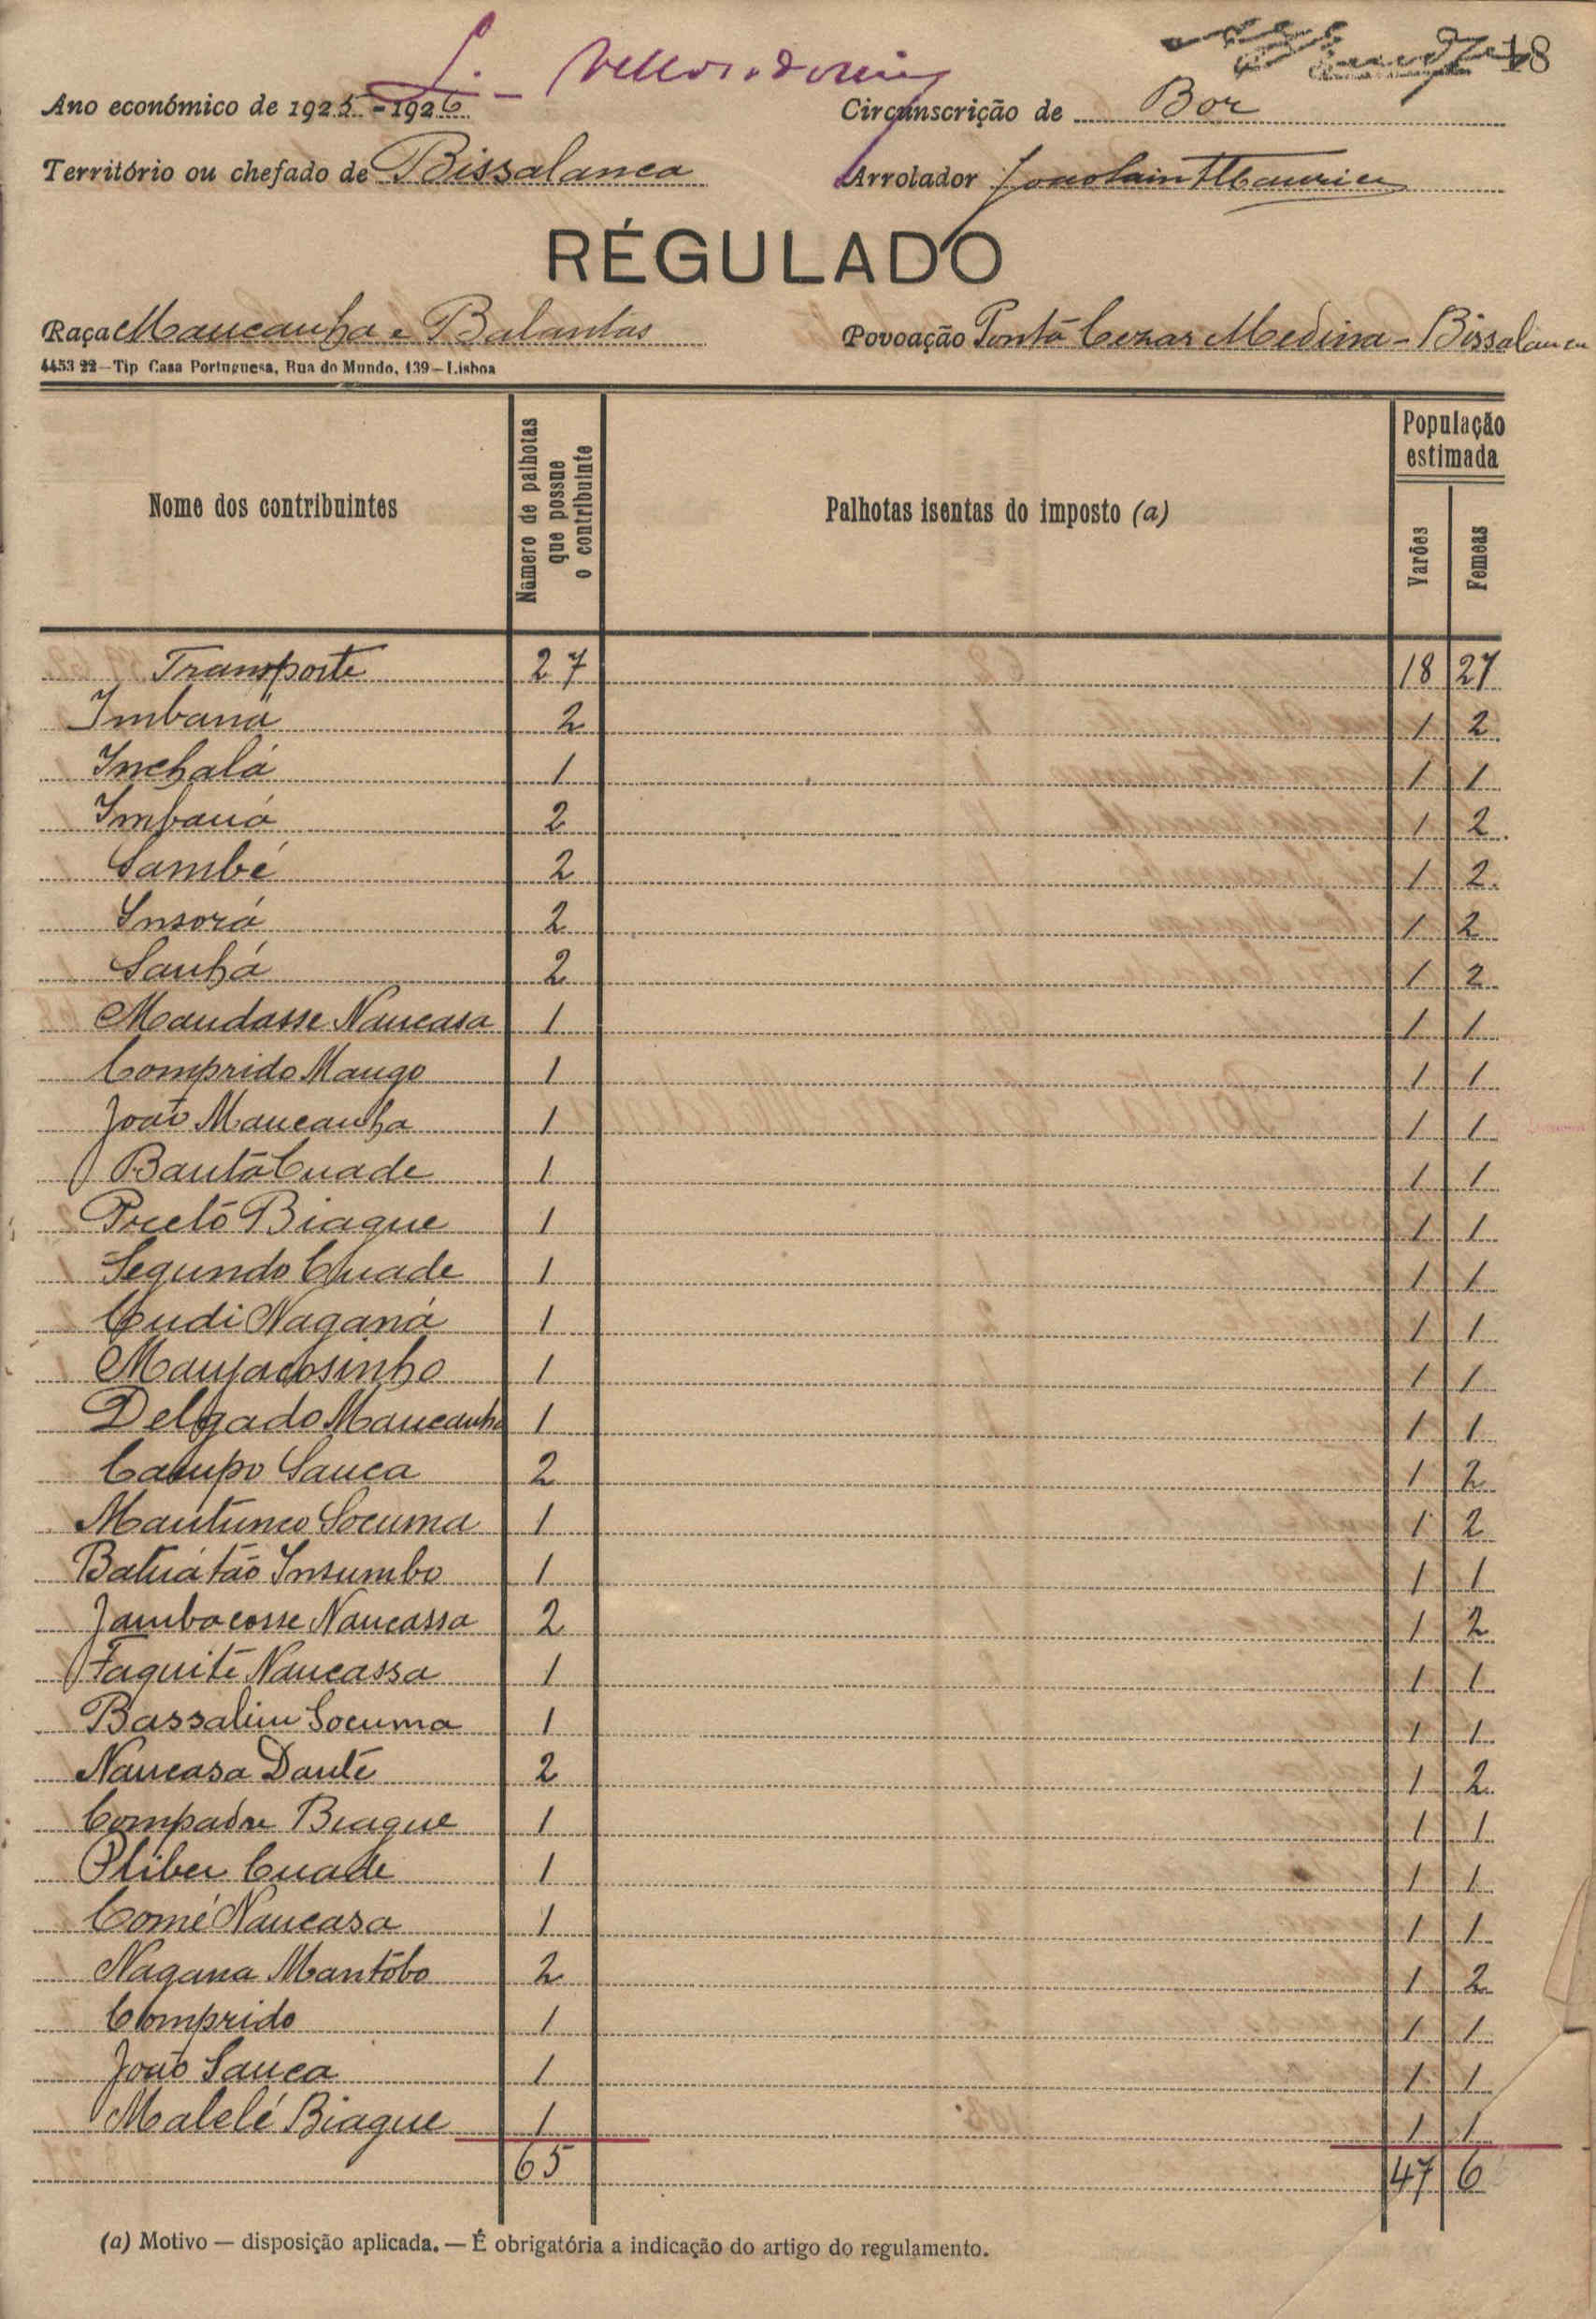 18
Ano económico de 1925-1926
Circunscrição de Bor
Território ou chefado de Bissalanca
Arrolador
RÉGULADO
Raça Mancanha e Balantas
Povoação Ponta Cezar Medina - Bissalanca
4453 22-Tip Casa Portuguesa, Rua do Mundo, 139-Lisboa
Nome dos contribuintes
Número de palhotas que possue o contribuinte
Palhotas isentas do imposto (a)
População estimada
Varões
Femeas
Transporte 27 18 27
Imbana 2 1 2
Inchalá 1 1 1
Imbaná 2 1 2
Sambé 2 1 2
Insorá 2 1 2
Sanhá 2 1 2
Mandasse Nancasa 1 1 1
Comprido Mango 1 1 1
João Mancanha 1 1 1
Bantã Cuade 1 1 1
Preto Biague 1 1 1
Segundo Cuade 1 1 1
Cudi Naganá 1 1 1
Manjacosinho 1 1 1
Delgado Mancanha 1 1 1
Campo Sanca 2 1 2
Mantunco Socuma 1 1 2
Batiátão Insumbo 1 1 1
Jambacosse Nancassa 2 1 2
Faquité Nancassa 1 1 1
Bassalim Socuma 1 1 1
Nancasa Danté 2 1 2
Compadre Biague 1 1 1
Cuade 1 1 1
Comé Nancasa 1 1 1
Nagana Mantôbo 2 1 2
Comprido 1 1 1
João Sanca 1 1 1
Malelé Biague 1 1 1
65 47 6
(a) Motivo — disposição aplicada. — É obrigatória a indicação do artigo do regulamento.